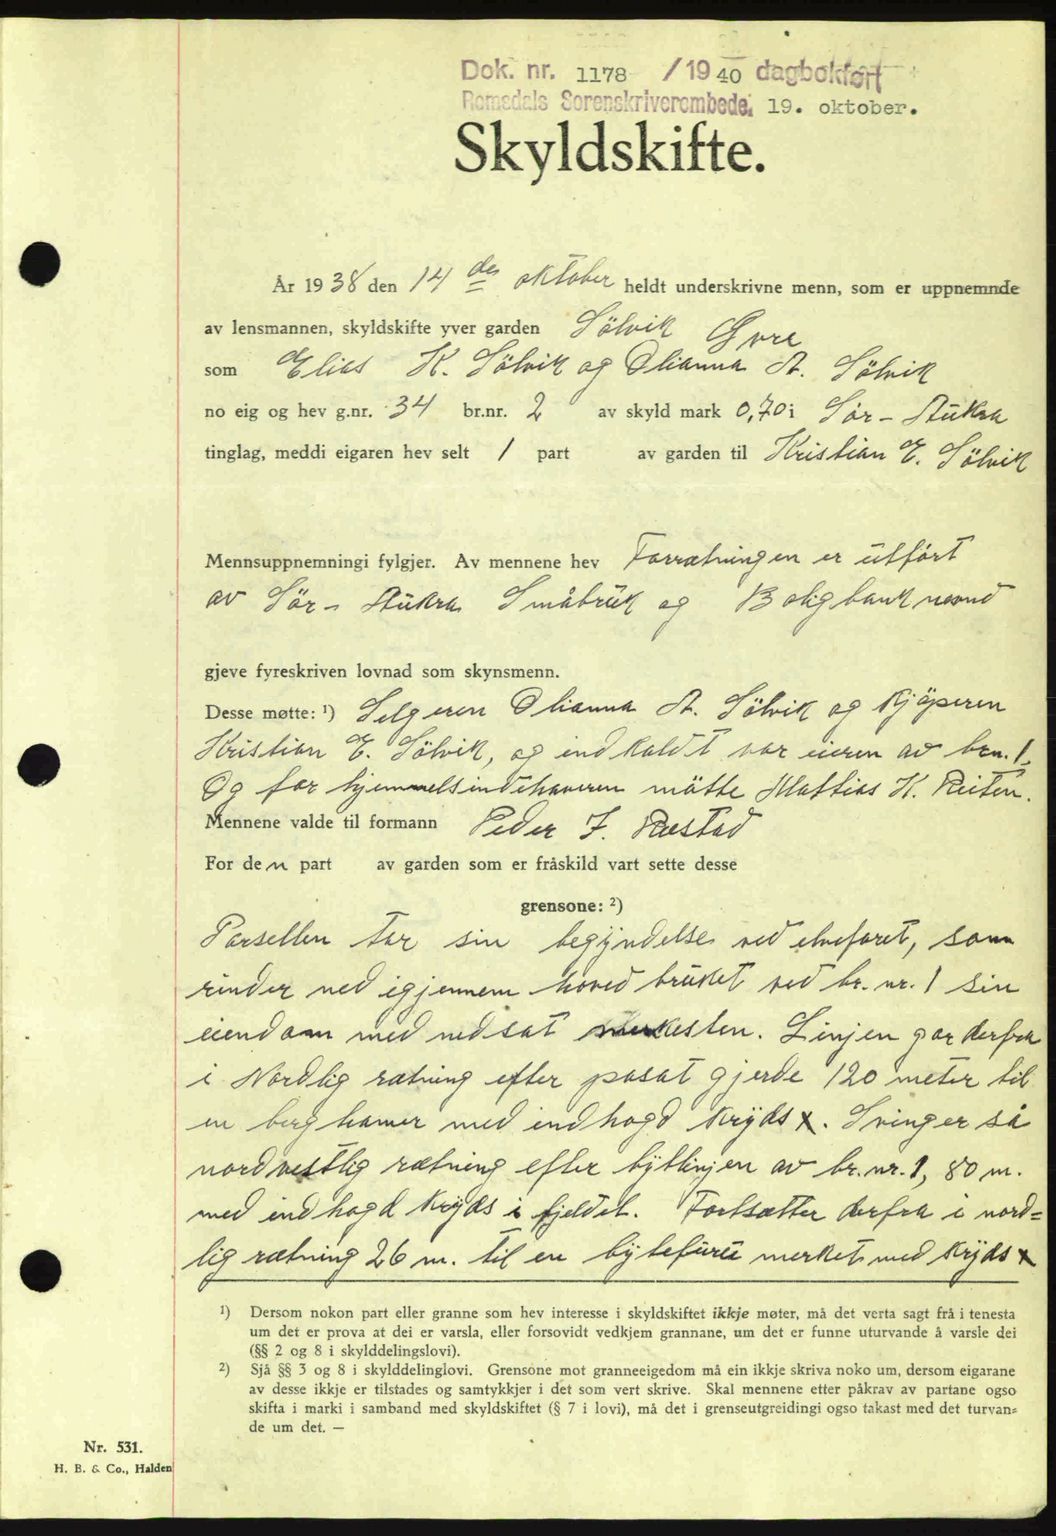 Dok. nr. 1178 / 1940 dagbokført
Romsdals Sorenskriverembede. 19. oktober.
Skyldskifte.
År 1938 den 14 des oktober heldt underskrivne menn, som er uppnemnde
av lensmannen, skyldskifte yver garden Sölvik Øvre
som Elias K. Sölvik og Olianna A. Sölvik
no eig og hev g.nr. 34 br.nr. 2 av skyld mark 0,70 i Sör-Aukra
tinglag, meddi eigaren hev selt 1 part av garden til Kristian E. Sölvik
Mennsuppnemningi fylgjer. Av mennene hev Forrætningen er utfört
av Sör-Aukra Småbruk og Boligbanknevnd
gjeve fyreskriven lovnad som skynsmenn.
Desse møtte: ¹) Selgeren Olianna A. Sölvik og kjöperen
Kristian E. Sölvik, og indkaldt var eieren av brn. 1.
Og for hjemmelsindehaveren mötte Mattias K. Reiten.
Mennene valde til formann Peder J. Ræstad
For den part av garden som er fråskild vart sette desse
grensone: ²)
Parsellen tar sin begyndelse ved elvefaret, som
rinder ned igjennem hovedbruket ved br. nr. 1 sin
eiendom med nedsat merkesten. Linjen gar derfra
i Nordlig rætning efter pasat gjerde 120 meter til
en berghamer med indhogd kryds x. Svinger så
nordvestlig rætning efter bytlinjen av br. nr. 1, 80 m.
med indhogd kryds i fjeldet. Fortsætter derfra i nord=
lig rætning 26 m. til en bytefuru merket med kryds x
¹) Dersom nokon part eller granne som hev interesse i skyldskiftet ikkje møter, må det verta sagt frå i tenesta
um det er prova at dei er varsla, eller forsovidt vedkjem grannane, um det er funne uturvande å varsle dei
(§§ 2 og 8 i skylddelingslovi).
²) Sjå §§ 3 og 8 i skylddelinglovi. Grensone mot granneeigedom må ein ikkje skriva noko um, dersom eigarane
av desse ikkje er tilstades og samtykkjer i det som vert skrive. Skal mennene etter påkrav av partane ogso
skifta i marki i samband med skyldskiftet (§ 7 i lovi), må det i grenseutgreidingi ogso takast med det turvan=
de um det. —
Nr. 531.
H. B. & Co., Halden